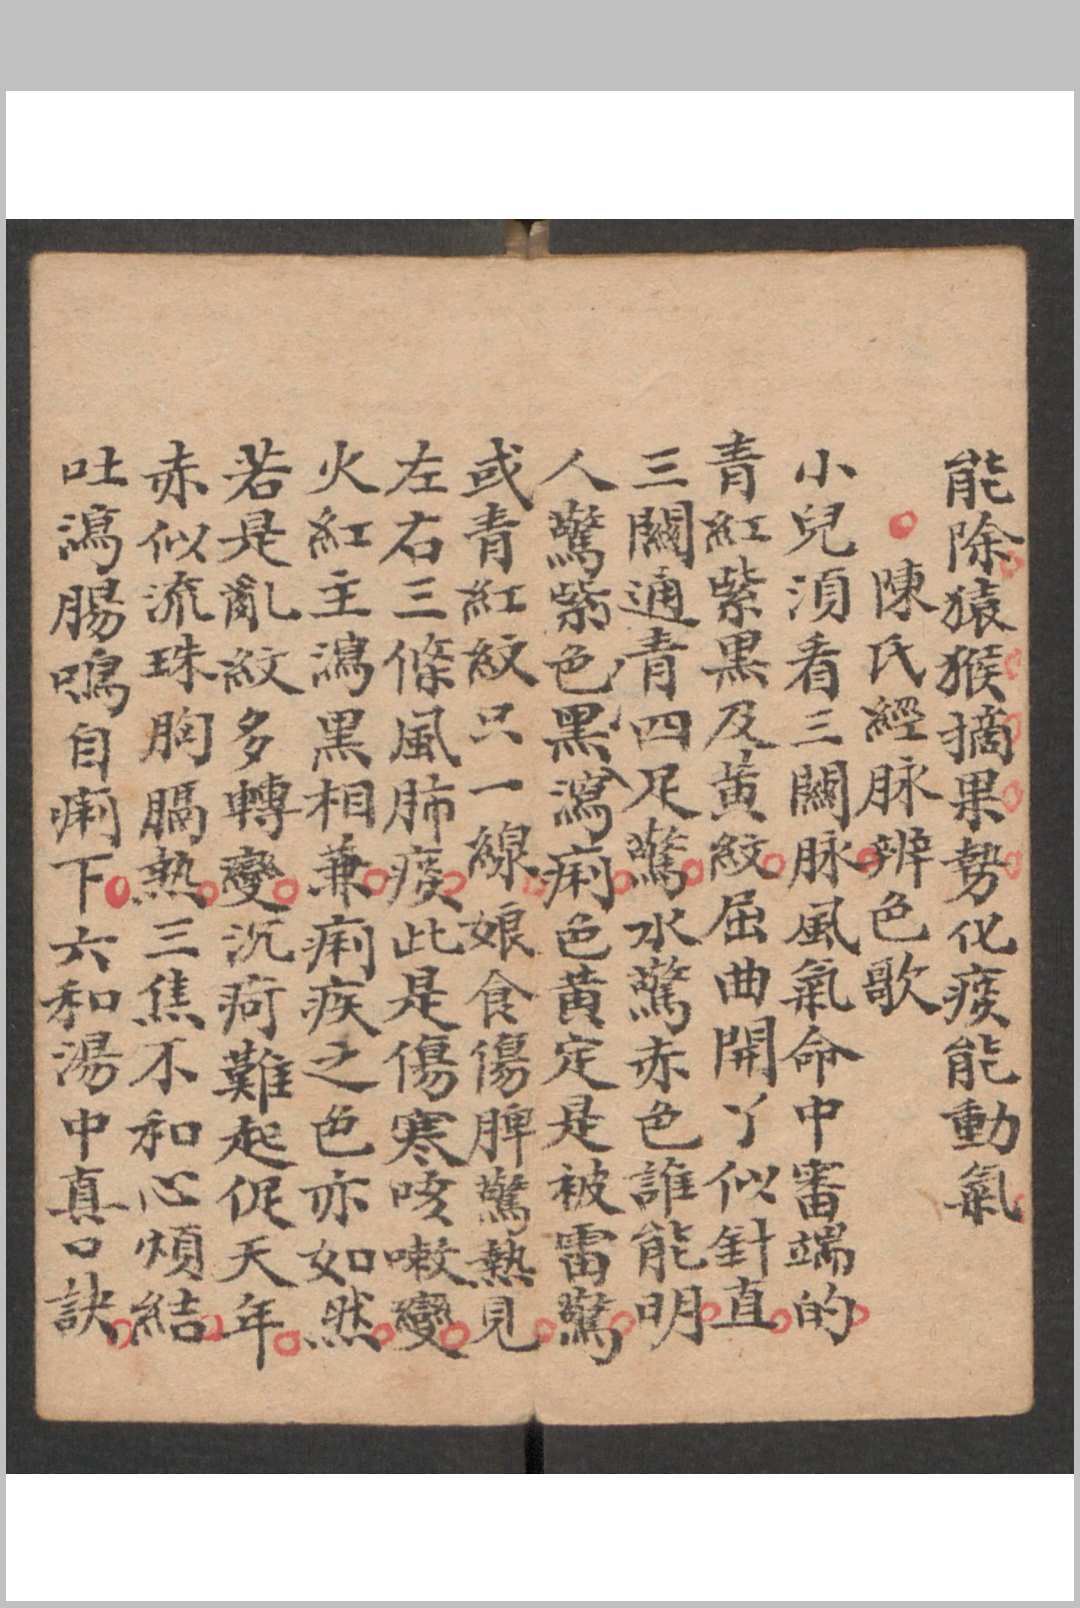 能除猿猴摘果势化痰能動氣
陳氏經脉辨色歌
小兒須看三關脉風氣命中審端的
青紅紫黒及黄紋屈曲開丫似針直
三關通青四足驚水驚赤色誰能明
人驚紫色黑瀉痢色黄定是被雷驚
或青紅紋只一線娘食傷脾驚熱見
左右三條風肺痰此是傷寒咳嗽變
火紅主瀉黑相兼痢疾之色亦如然
若是亂紋多轉變沉疴難起促天年
赤似流珠胸膈熱三焦不和心煩結
吐瀉腸鳴自痢下六和湯中真口訣